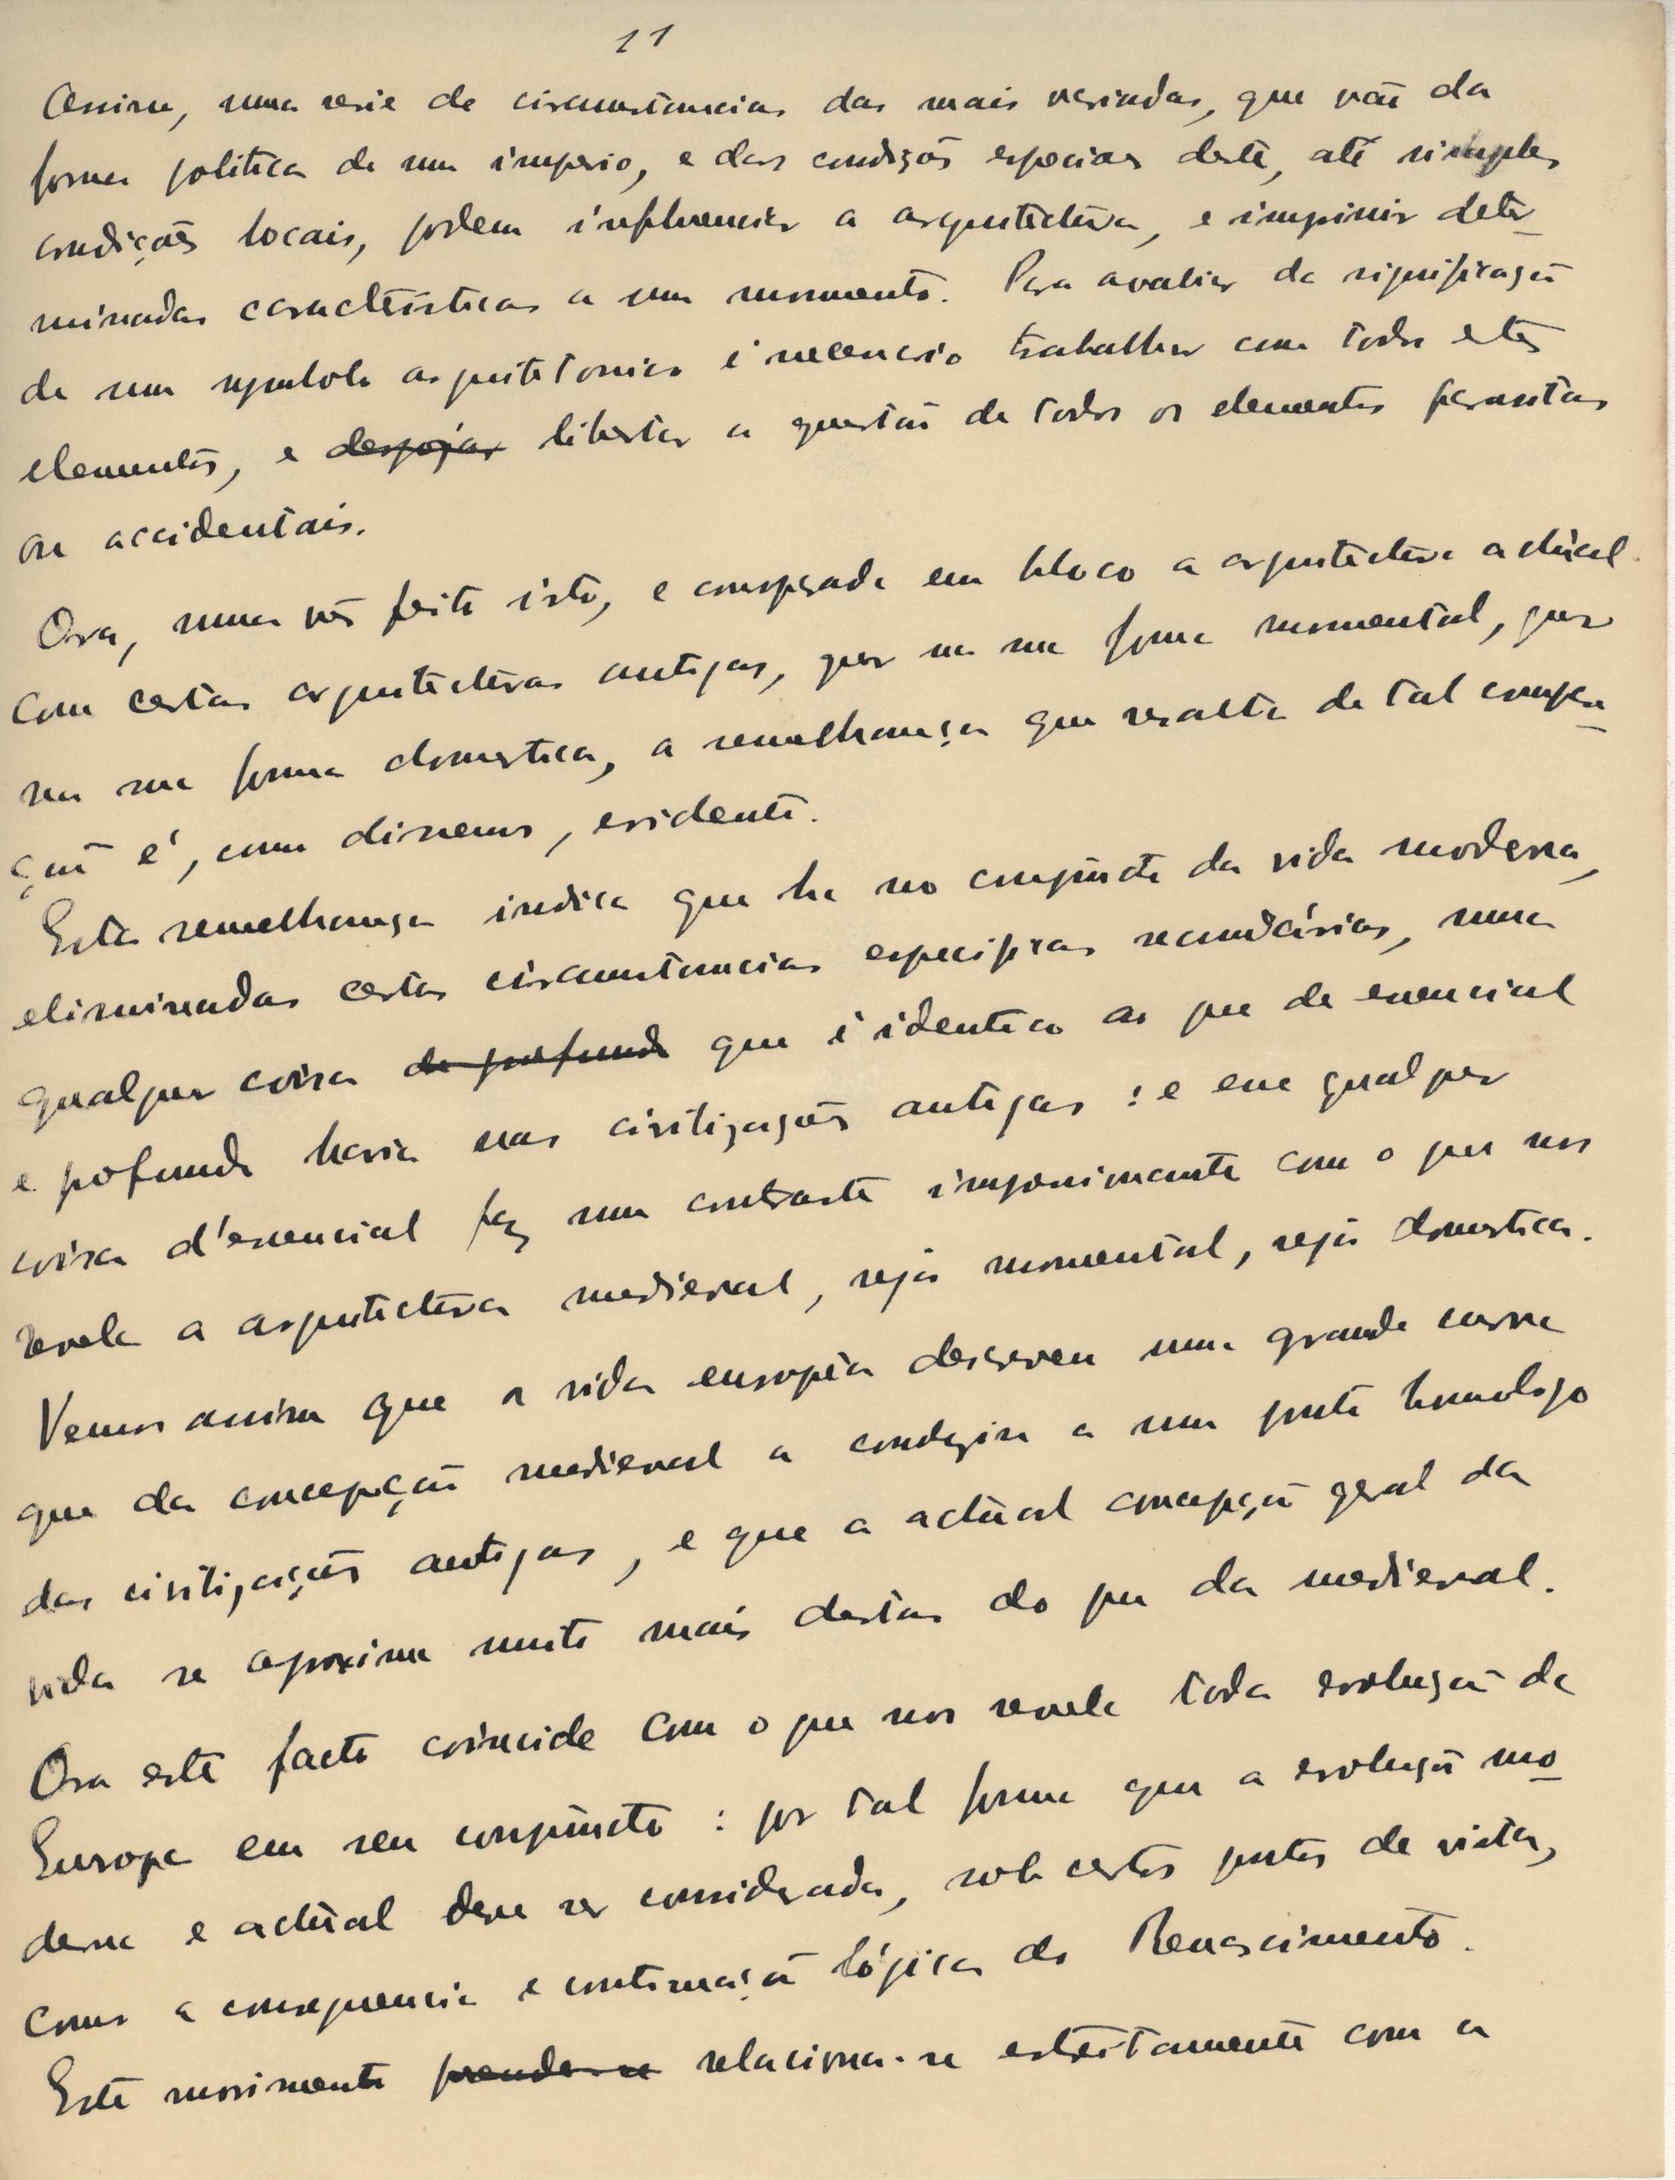 11
Assim, uma serie de circumstancias das mais variadas, que vão da
forma politica de um imperio, e das condições especiaes deste, até simples
condições locais, podem influenciar a arquitectura, e imprimir deter-
minadas caracteristicas a um momento. Para avaliar da significação
de um symbolo arquitetonico é necessario trabalhar com todos estes
elementos, e despojar libertar a questão de todos os elementos parasitas
ou accidentais.
Ora, uma vês feito isto, e comparada em bloco a arquitectura actúal
com certas arquitecturas antigas, quer na sua forma momental, quer
na sua forma domestica, a semelhança que resalta de tal compara-
ção é, como dissemos, evidente.
Esta semelhança indica que ha no conjúncto da vida moderna,
eliminadas certas circumstancias especificas secundárias, uma
qualquer coisa de profundo que é identica ao que de essencial
e profundo havia nas civilizações antigas : e esse qualquer
coisa d'essencial faz um contraste impressionante com o que nos
revela a arquitectura medieval, seja momental, seja domestica.
Vemos assim que a vida européa descreveu uma grande curva
que da concepção medieval a conduziu a um ponto homologo
das civilizações antigas, e que a actúal concepção geral da
vida se aproxima muito mais destas do que da medieval.
Ora este facto coincide com o que nos revela toda evolução da
Europa em seu conjúncto : por tal forma que a evolução mo-
derna e actúal deve ser considerada, sob certos pontos de vista,
como a consequencia e continuação lógica do Renascimento.
Este movimento prende-se relaciona-se estreitamente com a